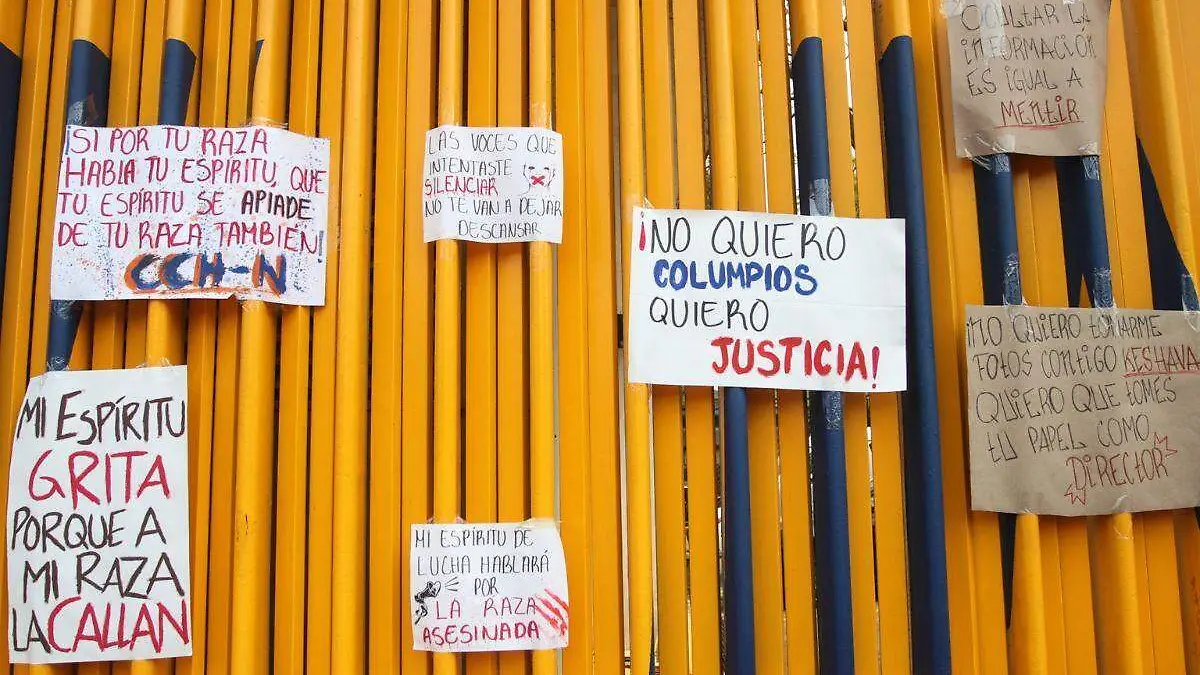 ¡SI POR TU RAZA
HABLA TU ESPÍRITU, QUE
TU ESPÍRITU SE APIADE
DE TU RAZA TAMBIÉN!
CCH-N
LAS VOCES QUE
INTENTASTE
SILENCIAR
NO TE VAN A DEJAR
DESCANSAR
¡NO QUIERO
COLUMPIOS
QUIERO
JUSTICIA!
OCULTAR LA
INFORMACIÓN
ES IGUAL A
MENTIR
MI ESPÍRITU
GRITA
PORQUE A
MI RAZA
LA CALLAN
MI ESPÍRITU DE
LUCHA HABLARÁ
POR
LA RAZA
ASESINADA
¡NO QUIERO TOMARME
FOTOS CONTIGO KESHAVA
QUIERO QUE TOMES
TU PAPEL COMO
DIRECTOR